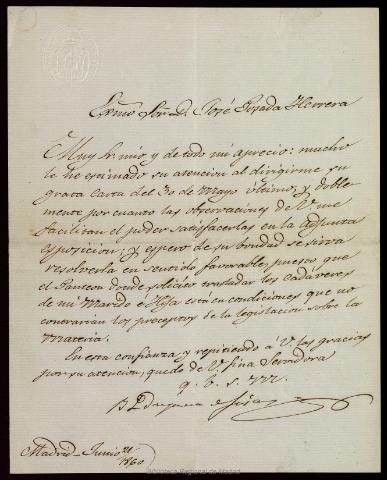 Exmo Sor. D. José Posada Herrera
Muy Sr. mio y de todo mi aprecio: mucho
le he estimado su atencion al dirigirme su
grata carta del 30 de Mayo último, y doble-
mente por cuanto las observaciones de V. me
facilitan el poder satisfacerlas en la adjunta
esposicion; y espero de su bondad se sirva
resolverla en sentido favorable, puesto que
el Panteon donde solicito trasladar los cadáveres
de mi Marido e Hija está en condiciones que no
contrarian los preceptos de la legislacion sobre la
materia.
En esta confianza, y repitiendo á V. las gracias
por su atencion, quedo de V. fina Servidora
q. b. s. m.
Madrid Junio
1860
Biblioteca Regional de Madrid